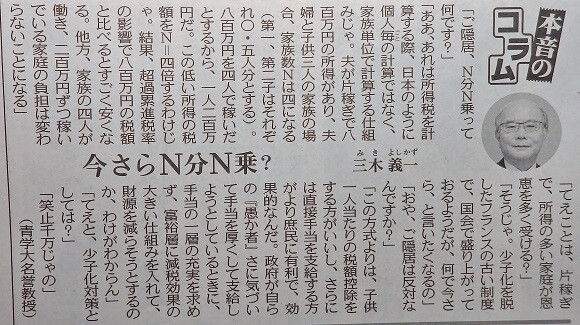 本音の
コラム
三木 義一
みき よしかず
今さらN分N乗?
「ご隠居、N分N乗って
何です?」
「ああ、あれは所得税を計
算する際、日本のように
個人毎の計算ではなく、
家族単位で計算する仕組
みじゃ。夫が片稼ぎで八
百万円の所得があり、夫
婦と子供三人の家族の場
合、家族数Nは四になる
(第一、第二子はそれぞ
れ〇・五人分とする)。
八百万円を四人で稼いだ
とするから、一人二百万
円だ。この低い所得の税
額をN=四倍するわけじ
ゃ。結果、超過累進税率
の影響で八百万円の税額
と比べるとすごく安くな
る。他方、家族の四人が
働き、二百万円ずつ稼い
でいる家庭の負担は変わ
らないことになる」
「てえことは、片稼ぎ
で、所得の多い家庭が恩
恵を多く受ける?」
「そうじゃ。少子化を脱
したフランスの古い制度
で、国会で盛り上がって
おるようだが、何で今さ
ら、と言いたくなるの」
「おや、ご隠居は反対な
んですか?」
「この方式よりは、子供
一人当たりの税額控除を
する方がいいし、さらに
は直接手当を支給する方
がより庶民に有利で、効
果的なんだ。政府が自ら
の『愚か者』さに気づい
て手当を厚くして支給し
ようとしているときに、
手当の一層の充実を求め
ず、富裕層に減税効果の
大きい仕組みを入れて、
財源を減らそうとするの
か、わけがわからん」
「てえと、少子化対策と
しては?」
「笑止千万じゃの」
(青学大名誉教授)